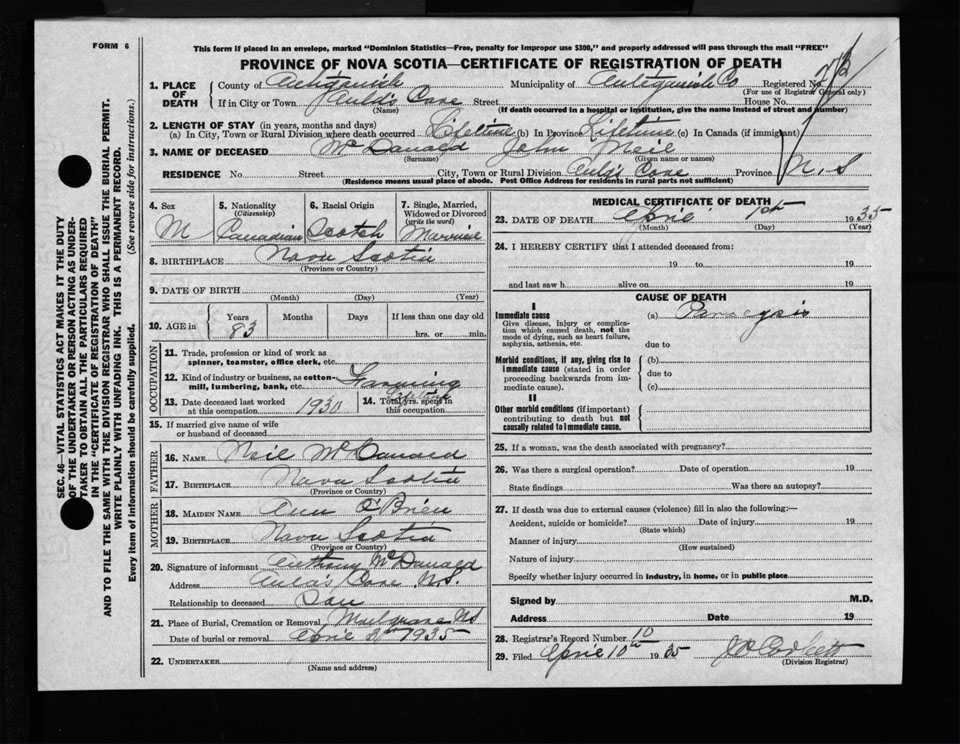 FORM 6
This form if placed in an envelope, marked "Dominion Statistics—Free, penalty for improper use $300," and properly addressed will pass through the mail "FREE"
PROVINCE OF NOVA SCOTIA—CERTIFICATE OF REGISTRATION OF DEATH
1. PLACE OF DEATH { County of Antigonish Municipality of Antigonish Co Registered No.
(Name) (For use of Registrar General only)
If in City or Town Auld's Cove Street House No.
(If death occurred in a hospital or institution, give the name instead of street and number)
2. LENGTH OF STAY (in years, months and days)
(a) In City, Town or Rural Division where death occurred Lifetime (b) In Province Lifetime (c) In Canada (if immigrant)
3. NAME OF DECEASED McDonald John Neil
(Surname) (Given name or names)
RESIDENCE No. Street City, Town or Rural Division Aulds Cove Province N.S
(Residence means usual place of abode. Post Office Address for residents in rural parts not sufficient)
4. Sex M
5. Nationality (Citizenship) Canadian
6. Racial Origin Scotch
7. Single, Married, Widowed or Divorced (write the word) Married
8. BIRTHPLACE Nova Scotia
(Province or Country)
9. DATE OF BIRTH
(Month) (Day) (Year)
10. AGE in { Years 83 Months Days If less than one day old
hrs. or min.
OCCUPATION
11. Trade, profession or kind of work as spinner, teamster, office clerk, etc.
12. Kind of industry or business, as cotton-mill, lumbering, bank, etc. Farming
13. Date deceased last worked at this occupation 1930
14. Total yrs. spent in this occupation Lifetime
15. If married give name of wife or husband of deceased
FATHER
16. NAME Neil McDonald
17. BIRTHPLACE Nova Scotia
(Province or Country)
MOTHER
18. MAIDEN NAME Ann O'Brien
19. BIRTHPLACE Nova Scotia
(Province or Country)
20. Signature of informant Anthony McDonald
Address Auld's Cove N.S.
Relationship to deceased Son
21. Place of Burial, Cremation or Removal Mulgrave NS
Date of burial or removal April 1935
22. UNDERTAKER
(Name and address)
MEDICAL CERTIFICATE OF DEATH
23. DATE OF DEATH April 1st 1935
(Month) (Day) (Year)
24. I HEREBY CERTIFY that I attended deceased from:
19 to 19
and last saw h alive on 19
CAUSE OF DEATH
I
Immediate cause (a) Paralysis
Give disease, injury or complication which caused death, not the mode of dying, such as heart failure, asphyxia, asthenia, etc.
due to
Morbid conditions, if any, giving rise to immediate cause (stated in order proceeding backwards from immediate cause). (b)
due to
(c)
II
Other morbid conditions (if important) contributing to death but not causally related to immediate cause.
25. If a woman, was the death associated with pregnancy?
26. Was there a surgical operation? Date of operation 19
State findings Was there an autopsy?
27. If death was due to external causes (violence) fill in also the following:—
Accident, suicide or homicide? Date of injury 19
(State which)
Manner of injury
(How sustained)
Nature of injury
Specify whether injury occurred in industry, in home, or in public place
Signed by M.D.
Address Date 19
28. Registrar's Record Number 10
29. Filed April 10th 1935
(Division Registrar)
SEC. 46—VITAL STATISTICS ACT MAKES IT THE DUTY
OF THE UNDERTAKER OR PERSON ACTING AS UNDER-
TAKER TO OBTAIN ALL THE PARTICULARS REQUIRED
IN THE "CERTIFICATE OF REGISTRATION OF DEATH"
AND TO FILE THE SAME WITH THE DIVISION REGISTRAR WHO SHALL ISSUE THE BURIAL PERMIT.
WRITE PLAINLY WITH UNFADING INK. THIS IS A PERMANENT RECORD.
Every item of information should be carefully supplied. (See reverse side for instructions.)